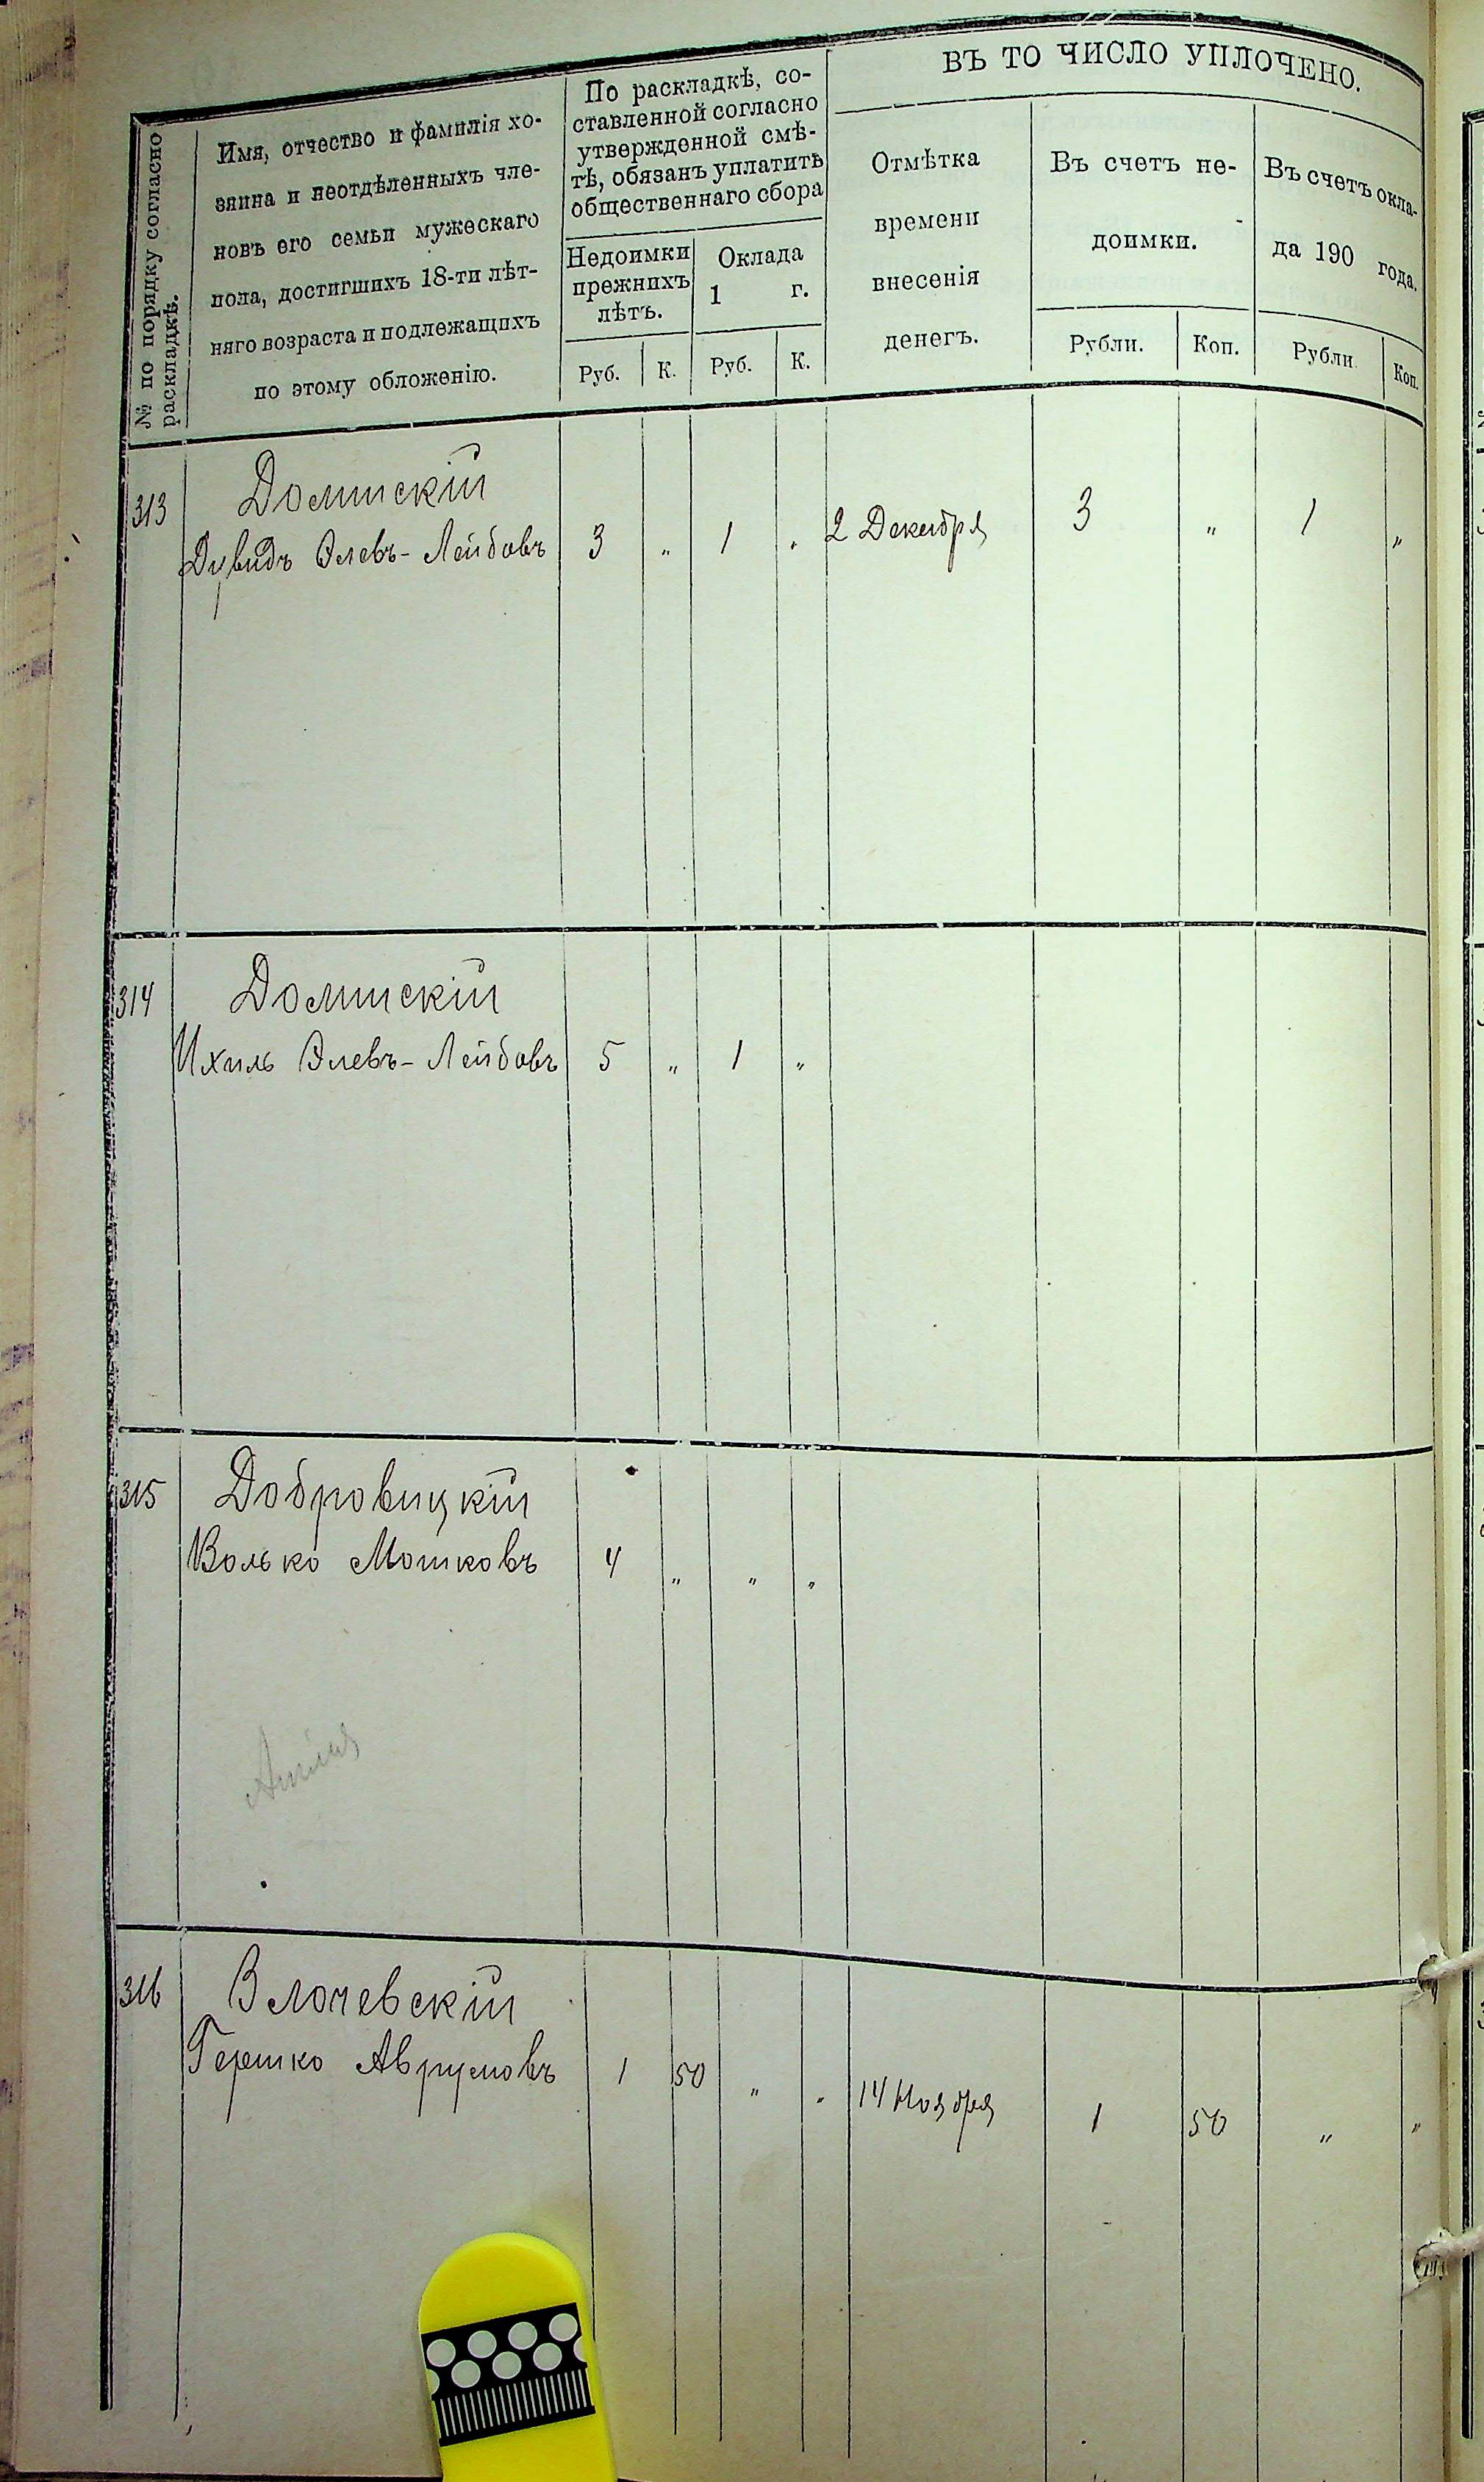 № по порядку согласно
раскладкѣ.
Имя, отчество и фамилія хо-
зяина и неотдѣленныхъ чле-
новъ его семьи мужескаго
пола, достигшихъ 18-ти лѣт-
няго возраста и подлежащихъ
по этому обложенію.
По раскладкѣ, со-
ставленной согласно
утвержденной смѣ-
тѣ, обязанъ уплатить
общественнаго сбора
Недоимки
прежнихъ
лѣтъ.
Оклада
1 г.
Руб. К. Руб. К.
ВЪ ТО ЧИСЛО УПЛОЧЕНО.
Отмѣтка
времени
внесенія
денегъ.
Въ счетъ не-
доимки.
Рубли. Коп.
Въ счетъ окла-
да 190 года.
Рубли Коп.
313 Долинскій
Дувидъ Элевъ-Лейбовъ 3 „ 1 „ 2 Декабря 3 „ 1 „
314 Долинскій
Ихиль Элевъ-Лейбовъ 5 „ 1 „
315 Добровицкій
Волько Мошковъ 4 „ „ „
316 Злочевскій
Гершко Аврумовъ 1 50 „ „ 14 Ноября 1 50 „ „